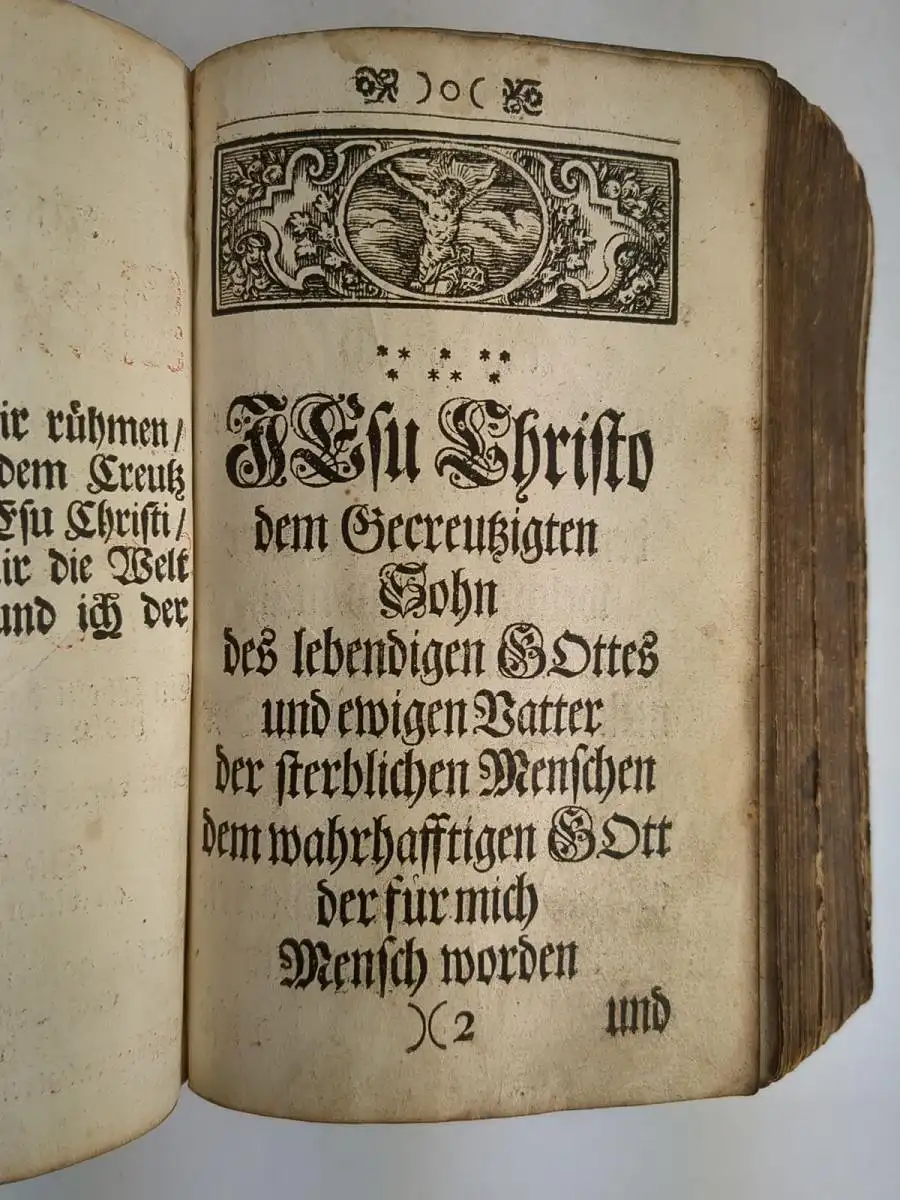 ir rühmen/
dem Creutz
Esu Christi/
ir die Welt
und ich der
)o(
JEsu Christo
dem Gecreutzigten
Sohn
des lebendigen GOttes
und ewigen Vatter
der sterblichen Menschen
dem wahrhafftigen GOtt
der für mich
Mensch worden
)(2 und